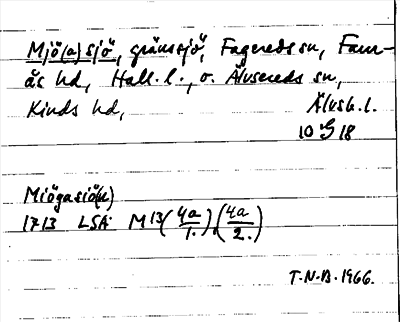 Mjö(a)sjö, gränssjö, Fagereds sn, Faur-
ås hd, Hall. l., o. Älvsereds sn,
Kinds hd, Älvsb. l.
10 G 18
Miögasiö(n)
1713 LSA M13(4a/1.),(4a/2.)
T.N.B. 1966.